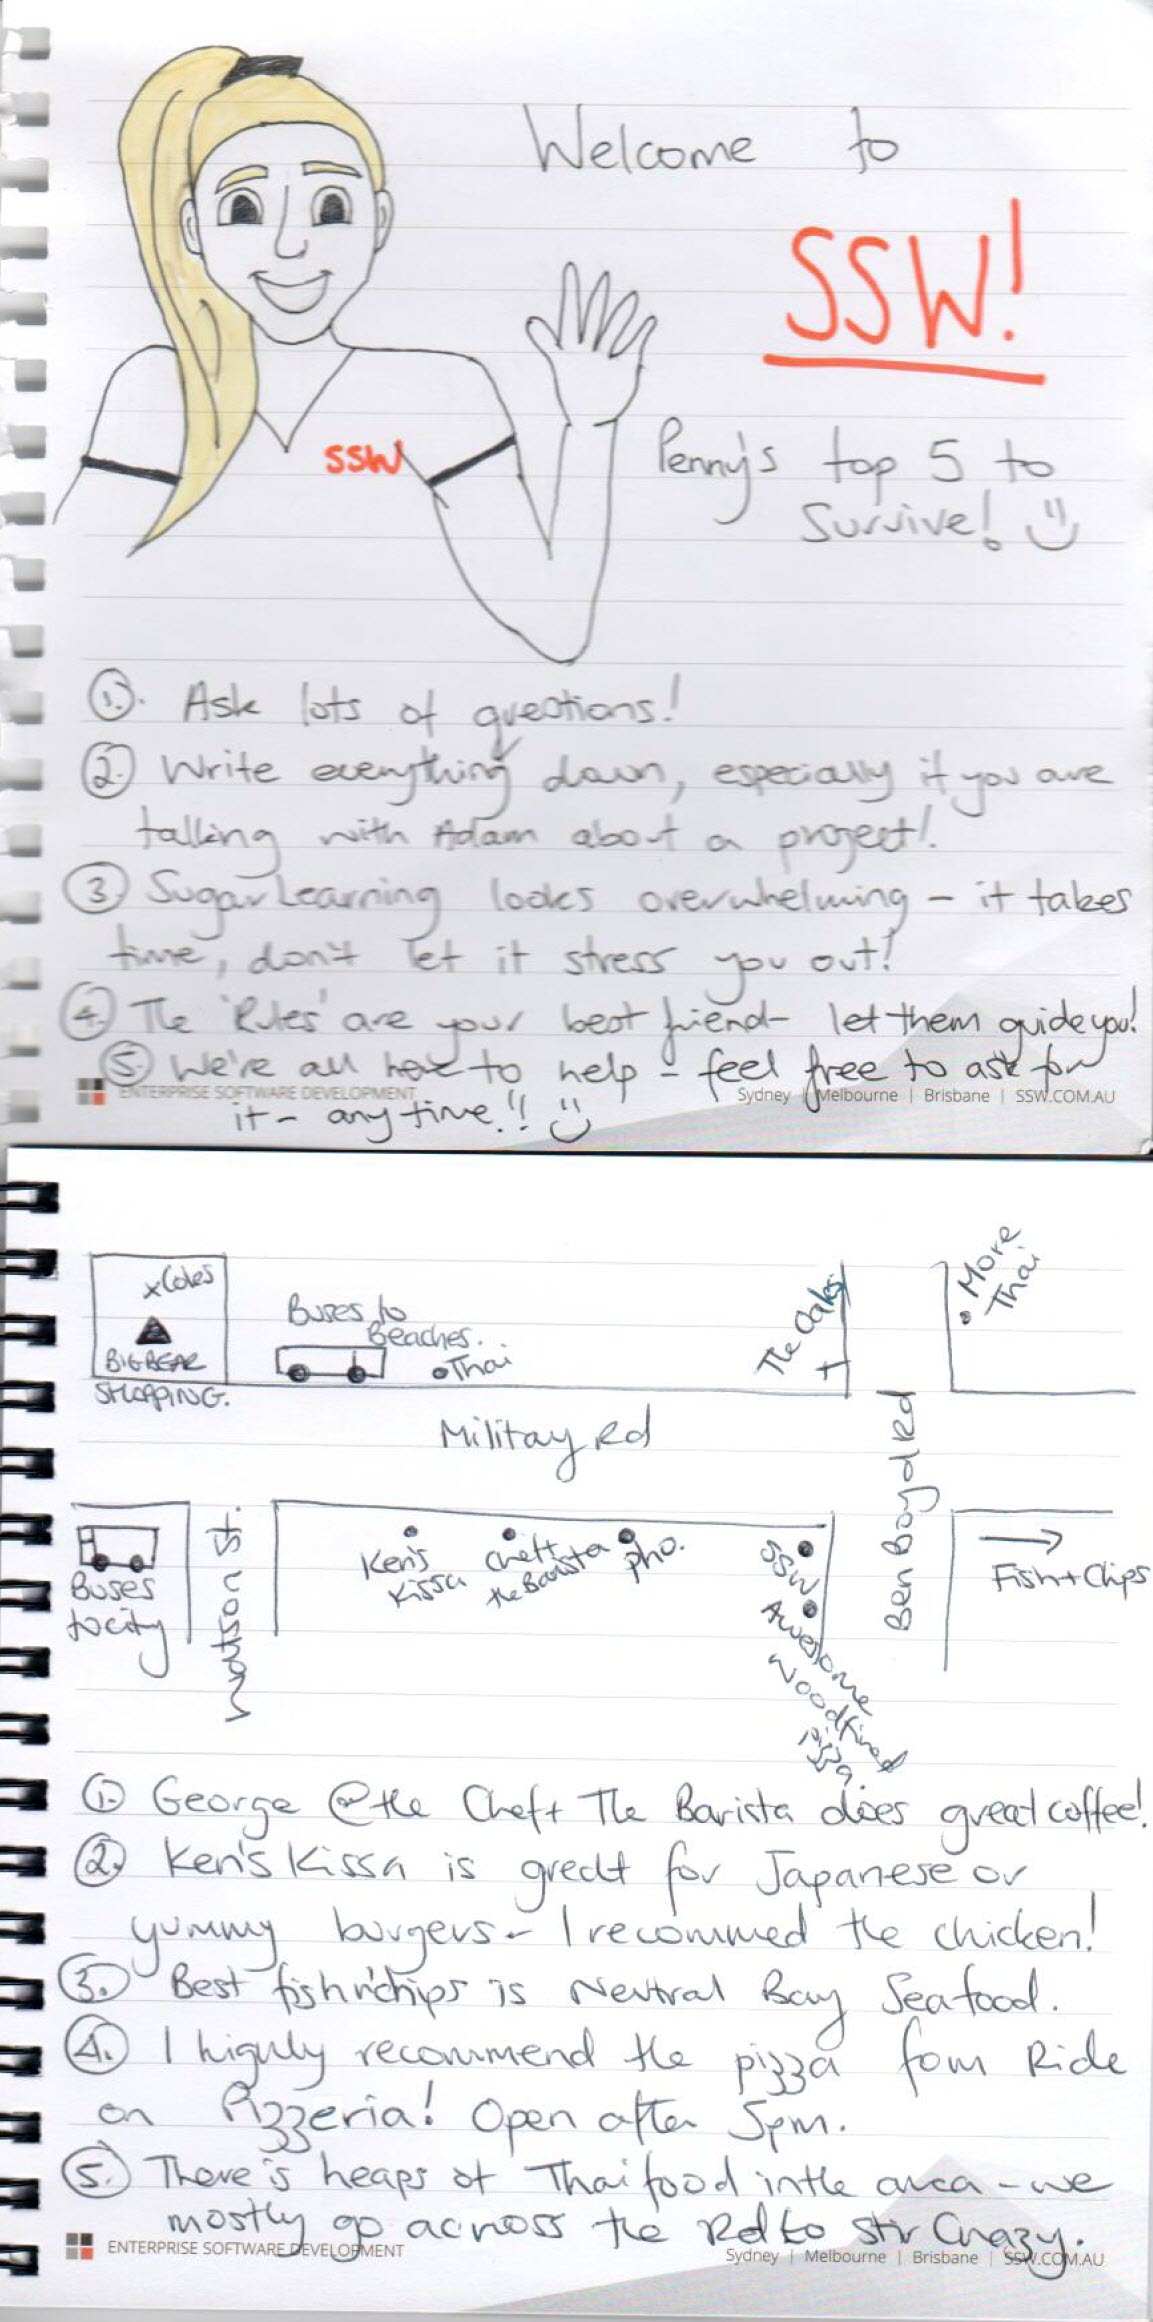 Welcome to
SSW!
SSW
Penny's top 5 to
Survive! :)
1. Ask lots of questions!
2. Write everything down, especially if you are
talking with Adam about a project!
3. SugarLearning looks overwhelming - it takes
time, don't let it stress you out!
4. The 'Rules' are your best friend - let them guide you!
5. We're all here to help - feel free to ask for
ENTERPRISE SOFTWARE DEVELOPMENT
Sydney | Melbourne | Brisbane | SSW.COM.AU
it - anytime!! :)
xColes
BIGBEAR
SHOPPING.
Buses to
Beaches.
Thai
The Oaks
More
Thai
Militay Rd
Ben Boyd Rd
Buses
to city
Watson St.
Ken's
Kissa
Chef+
the Barista
Pho.
SSW
Awesome
Woodfired
pizza.
Fish + Chips
1. George @ the Chef + The Barista does great coffee!
2. Ken's Kissa is great for Japanese or
yummy burgers - I recommed the chicken!
3. Best fish n'chips is Neutral Bay Seafood.
4. I highly recommend the pizza fom Ride
on Pizzeria! Open after 5pm.
5. There's heaps of Thai food in the area - we
mostly go across the Rd to Stir Crazy.
ENTERPRISE SOFTWARE DEVELOPMENT
Sydney | Melbourne | Brisbane | SSW.COM.AU